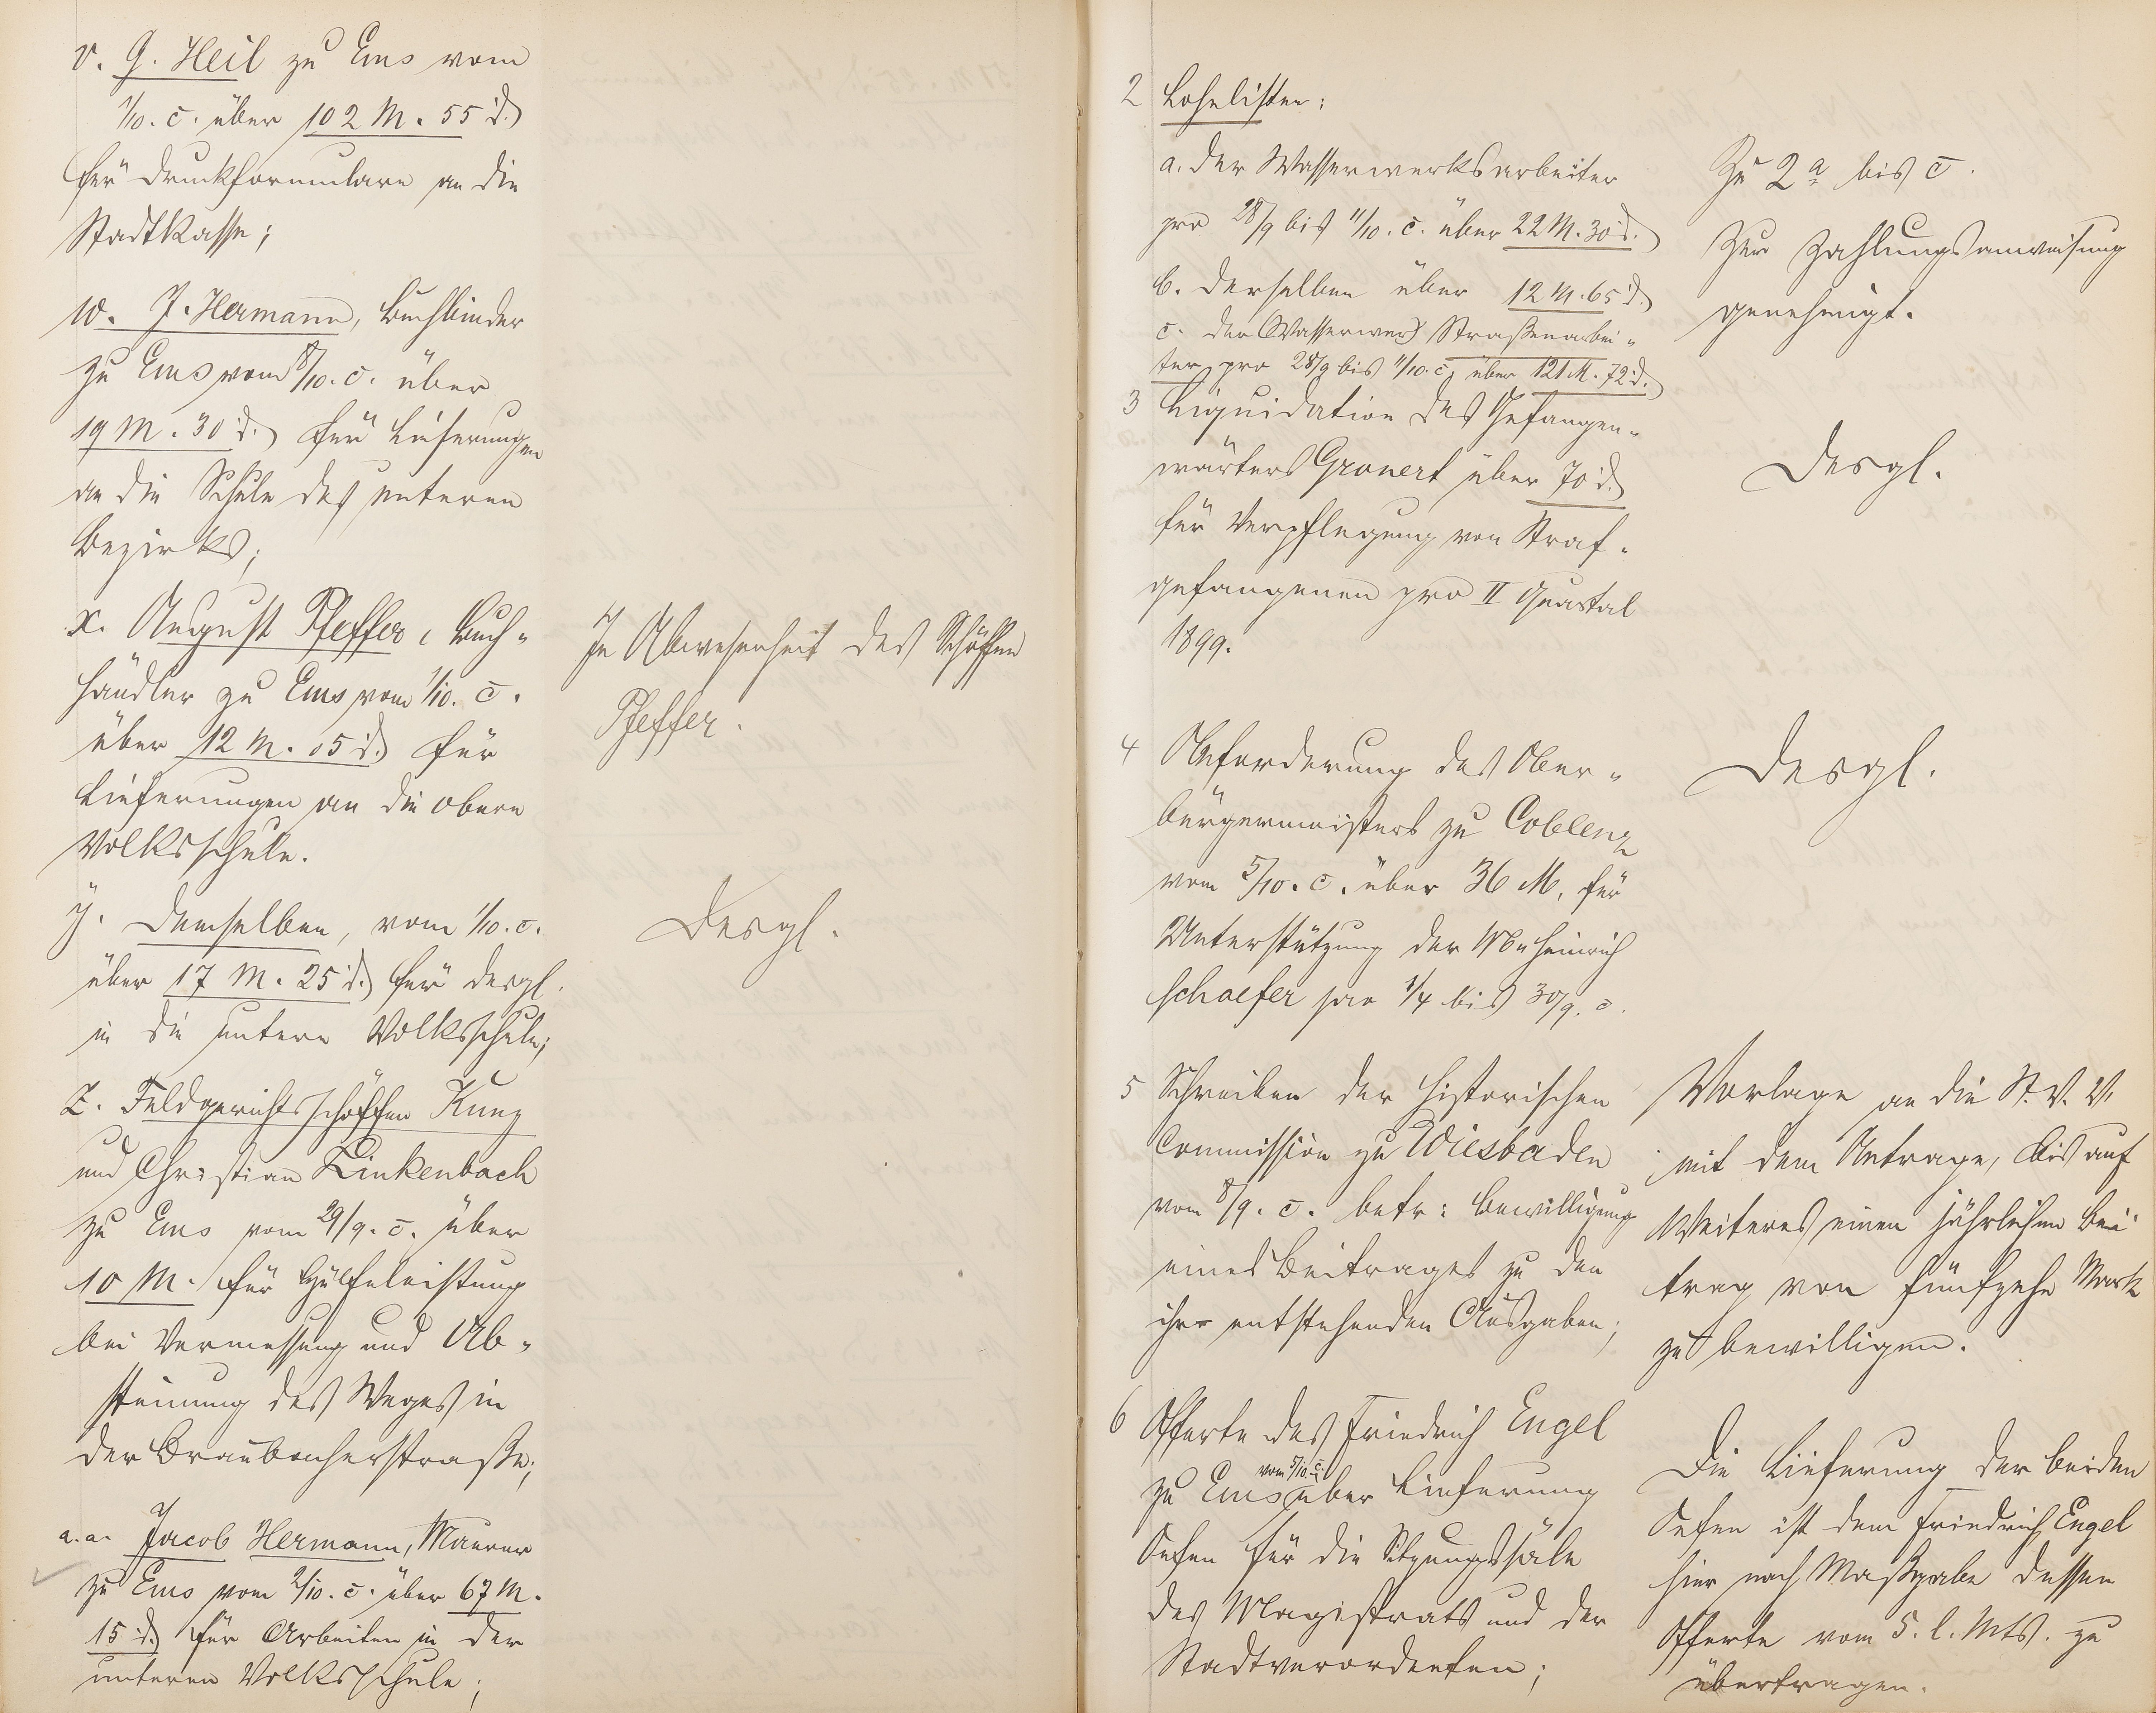 v. G. Heil zu Ems vom
1/10. c. über 102 M. 55 d.
für Druckformulare an die
Stadtkasse;
w. J. Hermann, Buchbinder
zu Ems vom 8/10. c. über
19 M. 30 d. für Lieferungen
an die Schule des unteren
Bezirks;
x. August Pfeffer, Buch-
händler zu Ems vom 1/10. c.
über 12 M. 05 d. für
Lieferungen an die obere
Volksschule.
In Abwesenheit des Schöffen
Pfeffer.
y. Demselben, vom 1/10. c.
über 17 M. 25 d. für desgl.
in die untere Volksschule;
Desgl.
z. Feldgerichtsschöffen Kunz
und Christian Linkenbach
zu Ems vom 29/9. c. über
10 M. für Hülfeleistung
bei Vermessung und Ab-
steinung des Weges in
der Braubacherstraße;
a.a. Jacob Hermann, Maurer
zu Ems vom 2/10. c. über 67 M.
15 d. für Arbeiten in der
unteren Volksschule;
2 Lohnlisten:
a. der Wasserwerksarbeiter
pro 28/9 bis 11/10. c. über 22 M. 30 d.
b. derselben über 12 M. 65 d.
c. der (Wasserwer) Straßenarbei-
ter pro 28/9 bis 11/10. c. über 121 M. 72 d.
Zu 2 a bis c.
Zur Zahlungsanweisung
genehmigt.
3 Liquidation des Gefangen-
wärters Gronert über 70 d.
für Verpflegung von Straf-
gefangenen pro II Quartal
1899.
Desgl.
4 Anforderung des Ober-
bürgermeisters zu Coblenz
vom 5/10. c. über 36 M. für
Unterstützung der Heinrich
Schaefer pro 1/4 bis 30/9. c.
Desgl.
5 Schreiben der historischen
Commission zu Wiesbaden
vom 8/9. c. betr: Bewilligung
eines Beitrages zu den
ihr entstehenden Ausgaben;
Vorlage an die St. V. V.
mit dem Antrage, bis auf
Weiteres einen jährlichen Bei-
trag von fünfzehn Mark
zu bewilligen.
6 Offerte des Friedrich Engel
zu Ems vom 5/10. c. über Lieferung
Oefen für die Sitzungssäle
des Magistrats und der
Stadtverordneten;
Die Lieferung der beiden
Oefen ist dem Friedrich Engel
hier nach Maßgabe dessen
Offerte vom 5. l. Mts. zu
übertragen.